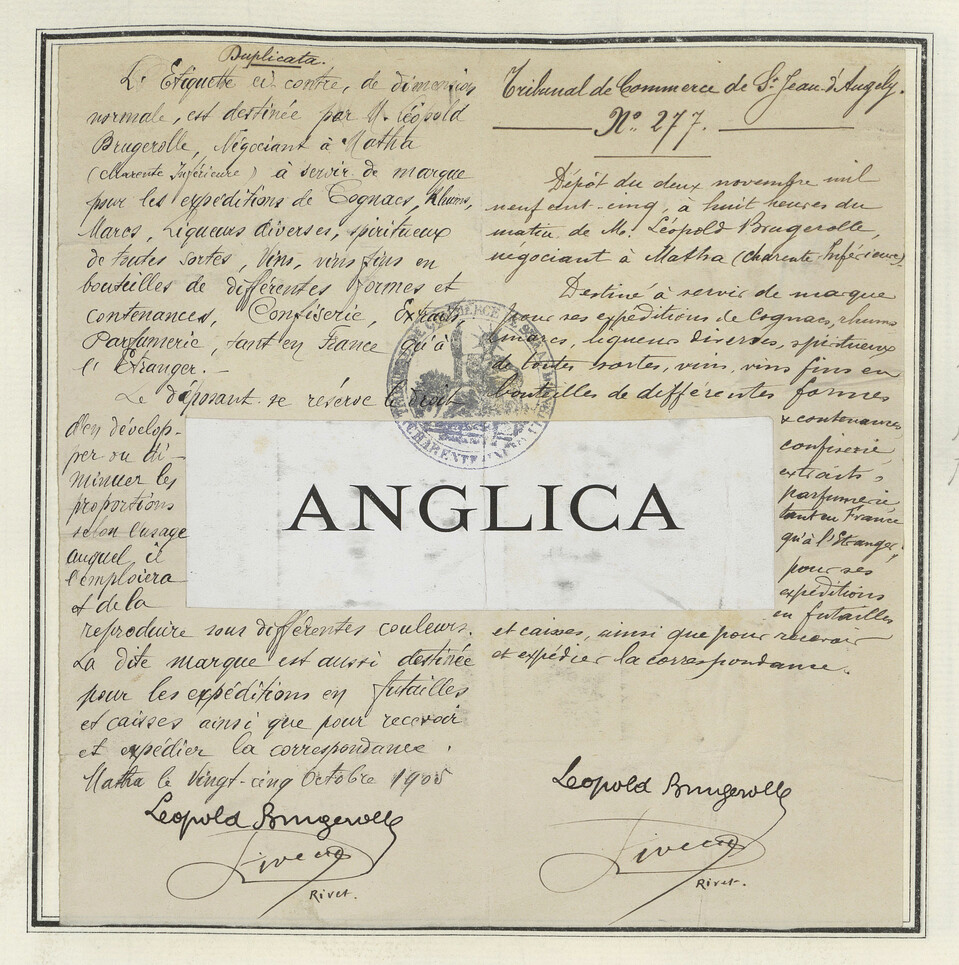 Duplicata.
L'Etiquette ci contre, de dimension
normale, est destinée par M. Léopold
Brugerolle, Négociant à Matha
(Charente Inférieure) à servir de marque
pour les expéditions de Cognacs, Rhums,
Marcs, Liqueurs diverses, spiritueux
de toutes sortes, Vins, vins fins en
bouteilles de différentes formes et
contenances, Confiserie, Extraits,
Parfumerie, tant en France qu'à
l'Etranger. —
Le déposant se réserve le droit
d'en dévelop-
per ou di-
minuer les
proportions
selon l'usage
auquel il
l'emploiera
et de la
reproduire sous différentes couleurs.
La dite marque est aussi destinée
pour les expéditions en futailles
et caisses ainsi que pour recevoir
et expédier la correspondance.
Matha le Vingt-cinq Octobre 1905
Léopold Brugerolle
Rivet.
Tribunal de Commerce de St Jean-d'Angély.
No 277.
Dépôt du deux novembre mil
neuf cent-cinq, à huit heures du
matin de M. Léopold Brugerolle,
négociant à Matha (Charente-Inférieure)
Destiné à servir de marque
pour ses expéditions de Cognacs, rhums
marcs, liqueurs diverses, spiritueux
de toutes sortes, vins, vins fins en
bouteilles de différentes formes
& contenances,
confiserie,
extraits,
parfumerie
tant en France
qu'à l'Etranger,
pour ses
expéditions
en futailles
et caisses, ainsi que pour recevoir
et expédier la correspondance.
Léopold Brugerolle
Rivet.
ANGLICA